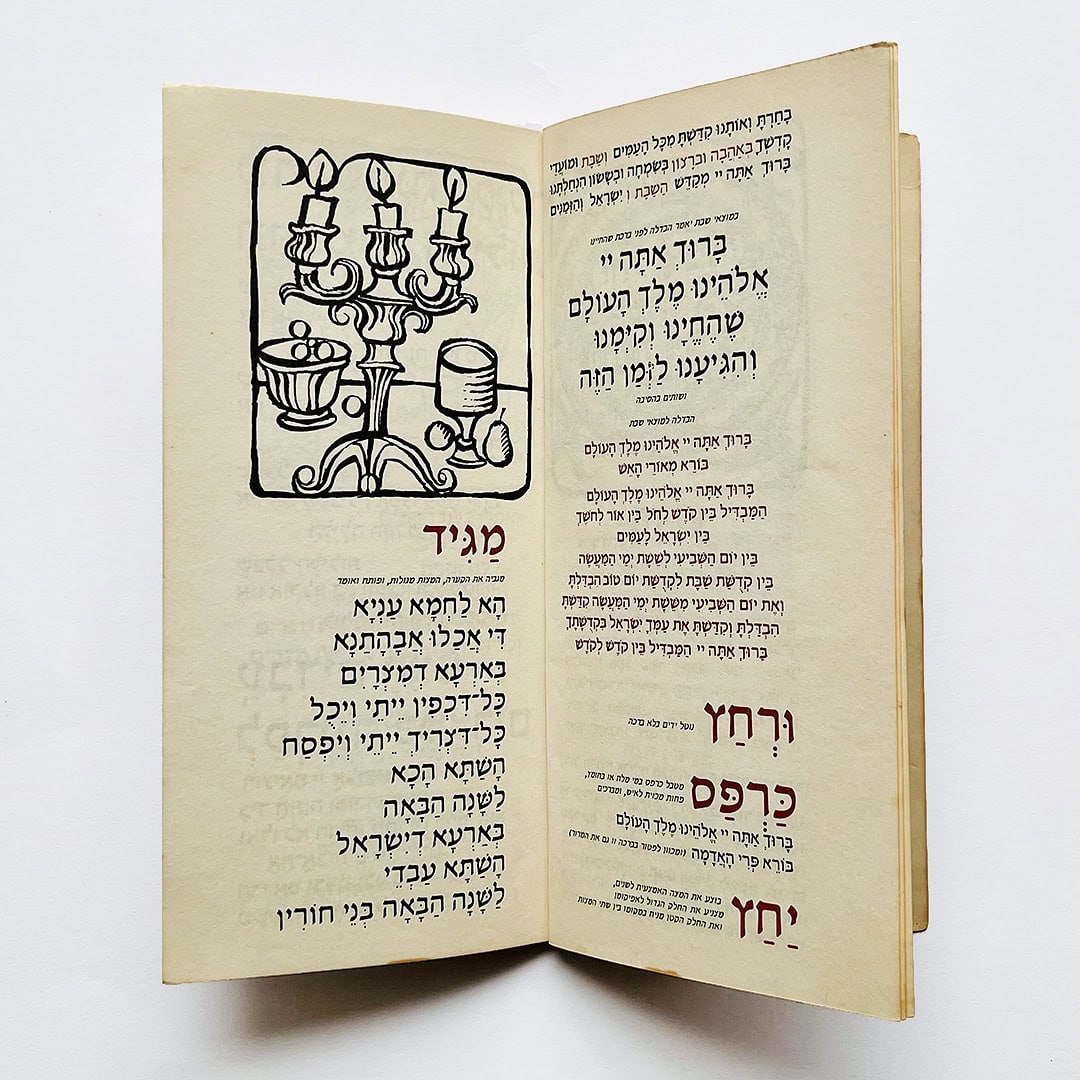 בָחַרְתָּ וְאוֹתָנוּ קִדַּשְׁתָּ מִכָּל הָעַמִּים וְשַׁבָּת וּמוֹעֲדֵי
קָדְשֶׁךָ בְּאַהֲבָה וּבְרָצוֹן בְּשִׂמְחָה וּבְשָׂשׂוֹן הִנְחַלְתָּנוּ
בָּרוּךְ אַתָּה יי מְקַדֵּשׁ הַשַּׁבָּת וְ יִשְׂרָאֵל וְהַזְּמַנִּים
במוצאי שבת יאמר הבדלה לפני ברכת שהחיינו
בָּרוּךְ אַתָּה יי
אֱלֹהֵינוּ מֶלֶךְ הָעוֹלָם
שֶׁהֶחֱיָנוּ וְקִיְּמָנוּ
וְהִגִּיעָנוּ לַזְּמַן הַזֶּה
ושותים בהסיבה
הבדלה למוצאי שבת
בָּרוּךְ אַתָּה יי אֱלֹהֵינוּ מֶלֶךְ הָעוֹלָם
בּוֹרֵא מְאוֹרֵי הָאֵשׁ
בָּרוּךְ אַתָּה יי אֱלֹהֵינוּ מֶלֶךְ הָעוֹלָם
הַמַּבְדִּיל בֵּין קֹדֶשׁ לְחֹל בֵּין אוֹר לְחֹשֶׁךְ
בֵּין יִשְׂרָאֵל לָעַמִּים
בֵּין יוֹם הַשְּׁבִיעִי לְשֵׁשֶׁת יְמֵי הַמַּעֲשֶׂה
בֵּין קְדֻשַּׁת שַׁבָּת לִקְדֻשַּׁת יוֹם טוֹב הִבְדַּלְתָּ
וְאֶת יוֹם הַשְּׁבִיעִי מִשֵּׁשֶׁת יְמֵי הַמַּעֲשֶׂה קִדַּשְׁתָּ
הִבְדַּלְתָּ וְקִדַּשְׁתָּ אֶת עַמְּךָ יִשְׂרָאֵל בִּקְדֻשָּׁתֶךָ
בָּרוּךְ אַתָּה יי הַמַּבְדִּיל בֵּין קֹדֶשׁ לְקֹדֶשׁ
וּרְחַץ
נוטל ידים בלא ברכה
כַּרְפַּס
מטבל כרפס במי מלח או בחומץ,
פחות מכזית לאיש, ומברכים
בָּרוּךְ אַתָּה יי אֱלֹהֵינוּ מֶלֶךְ הָעוֹלָם
בּוֹרֵא פְּרִי הָאֲדָמָה (ומכוון לפטור בברכה זו גם את המרור)
יַחַץ
בוצע את המצה האמצעית לשנים,
מצניע את החלק הגדול לאפיקומן
ואת החלק הקטן מניח במקומו בין שתי המצות
מַגִּיד
מגביה את הקערה, המצות מגולות, ופותח ואומר
הָא לַחְמָא עַנְיָא
דִּי אֲכַלוּ אֲבָהָתַנָא
בְּאַרְעָא דְמִצְרָיִם
כָּל־דִּכְפִין יֵיתֵי וְיֵכֻל
כָּל־דִּצְרִיךְ יֵיתֵי וְיִפְסַח
הָשַׁתָּא הָכָא
לַשָּׁנָה הַבָּאָה
בְּאַרְעָא דְיִשְׂרָאֵל
הָשַׁתָּא עַבְדֵי
לַשָּׁנָה הַבָּאָה בְּנֵי חוֹרִין